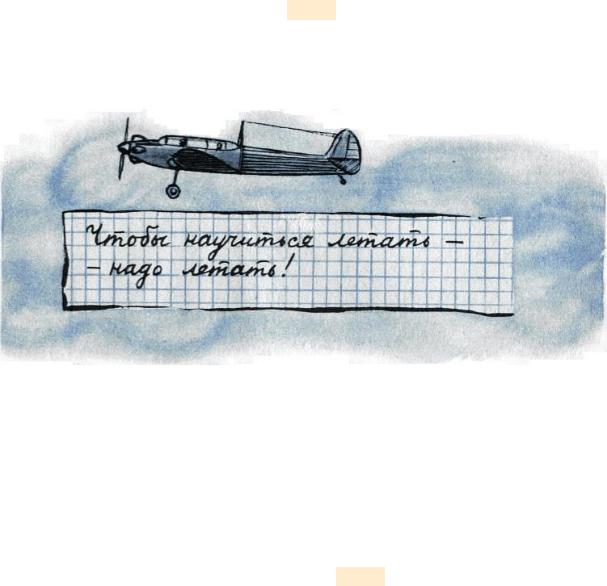 Чтобы научиться летать –
– надо летать!